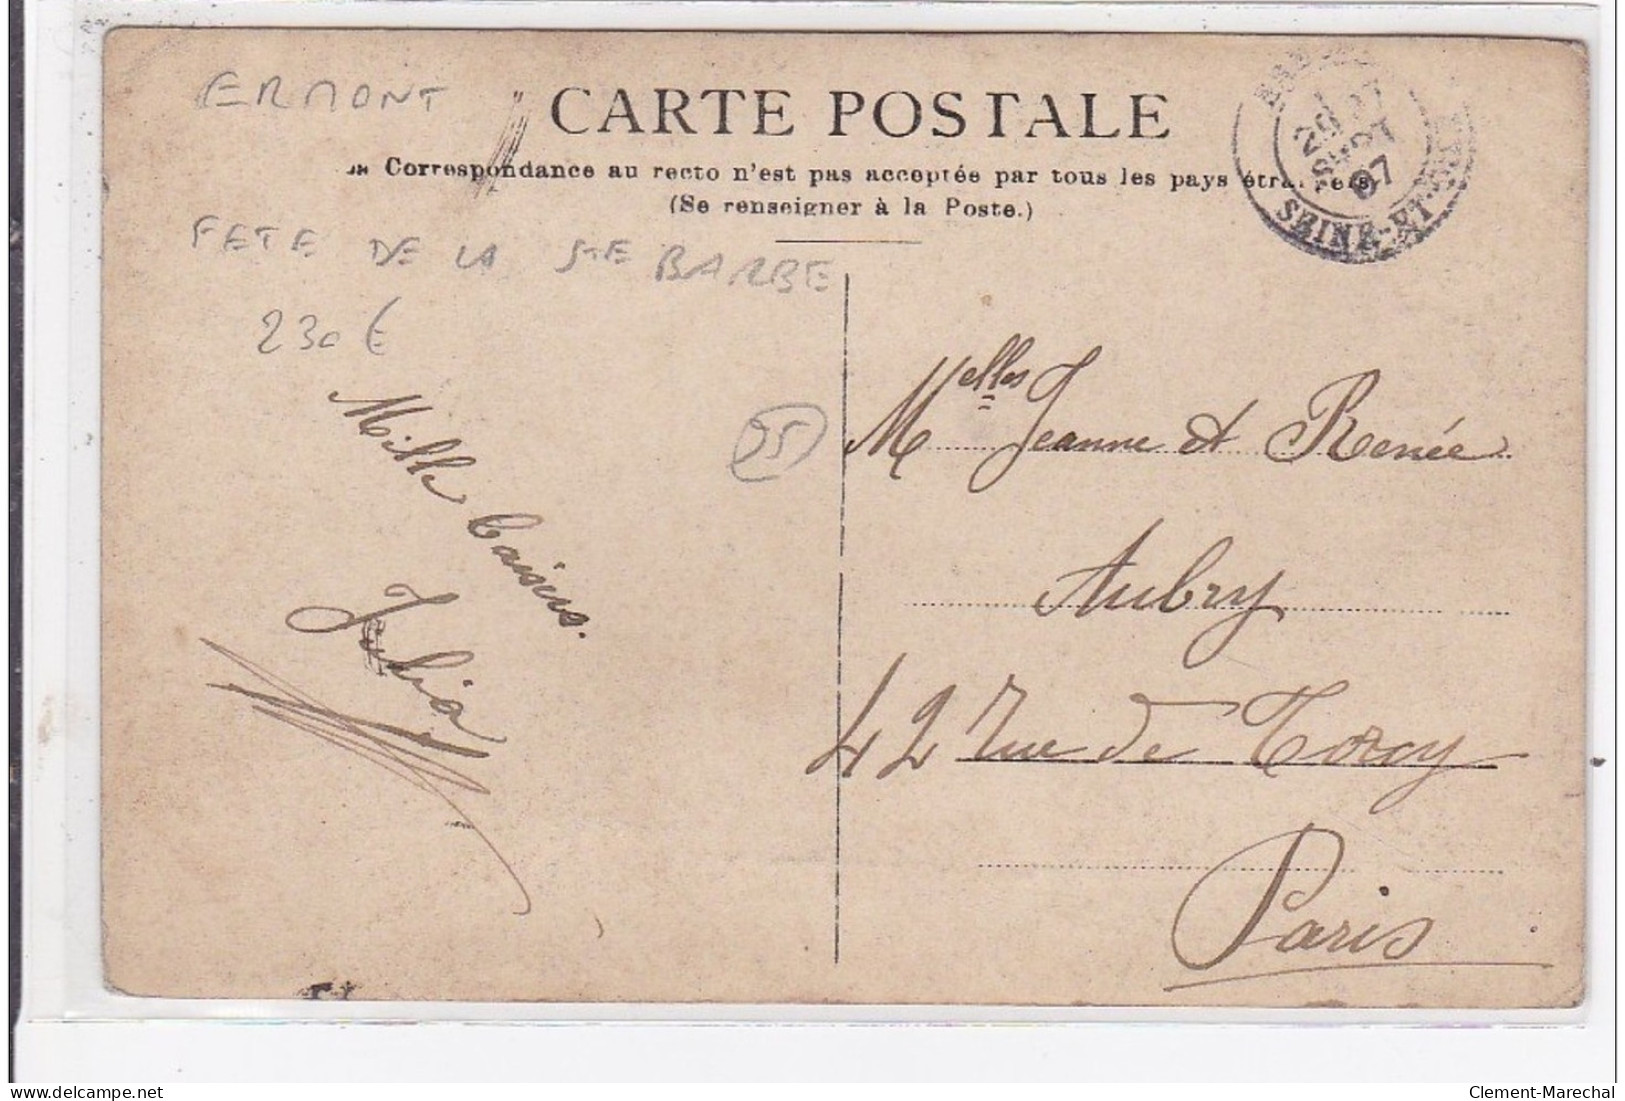 ERMONT
CARTE POSTALE
Correspondance au recto n'est pas acceptée par tous les pays étrangers.
(Se renseigner à la Poste.)
29
07
SEINE-ET-
FETE DE LA STE BARBE
230€
95
Mille baisers.
Julia
Melles Jeanne et Renée
Aubry
42 Rue de Torcy
Paris
www.delcampe.net
Clement-Marechal